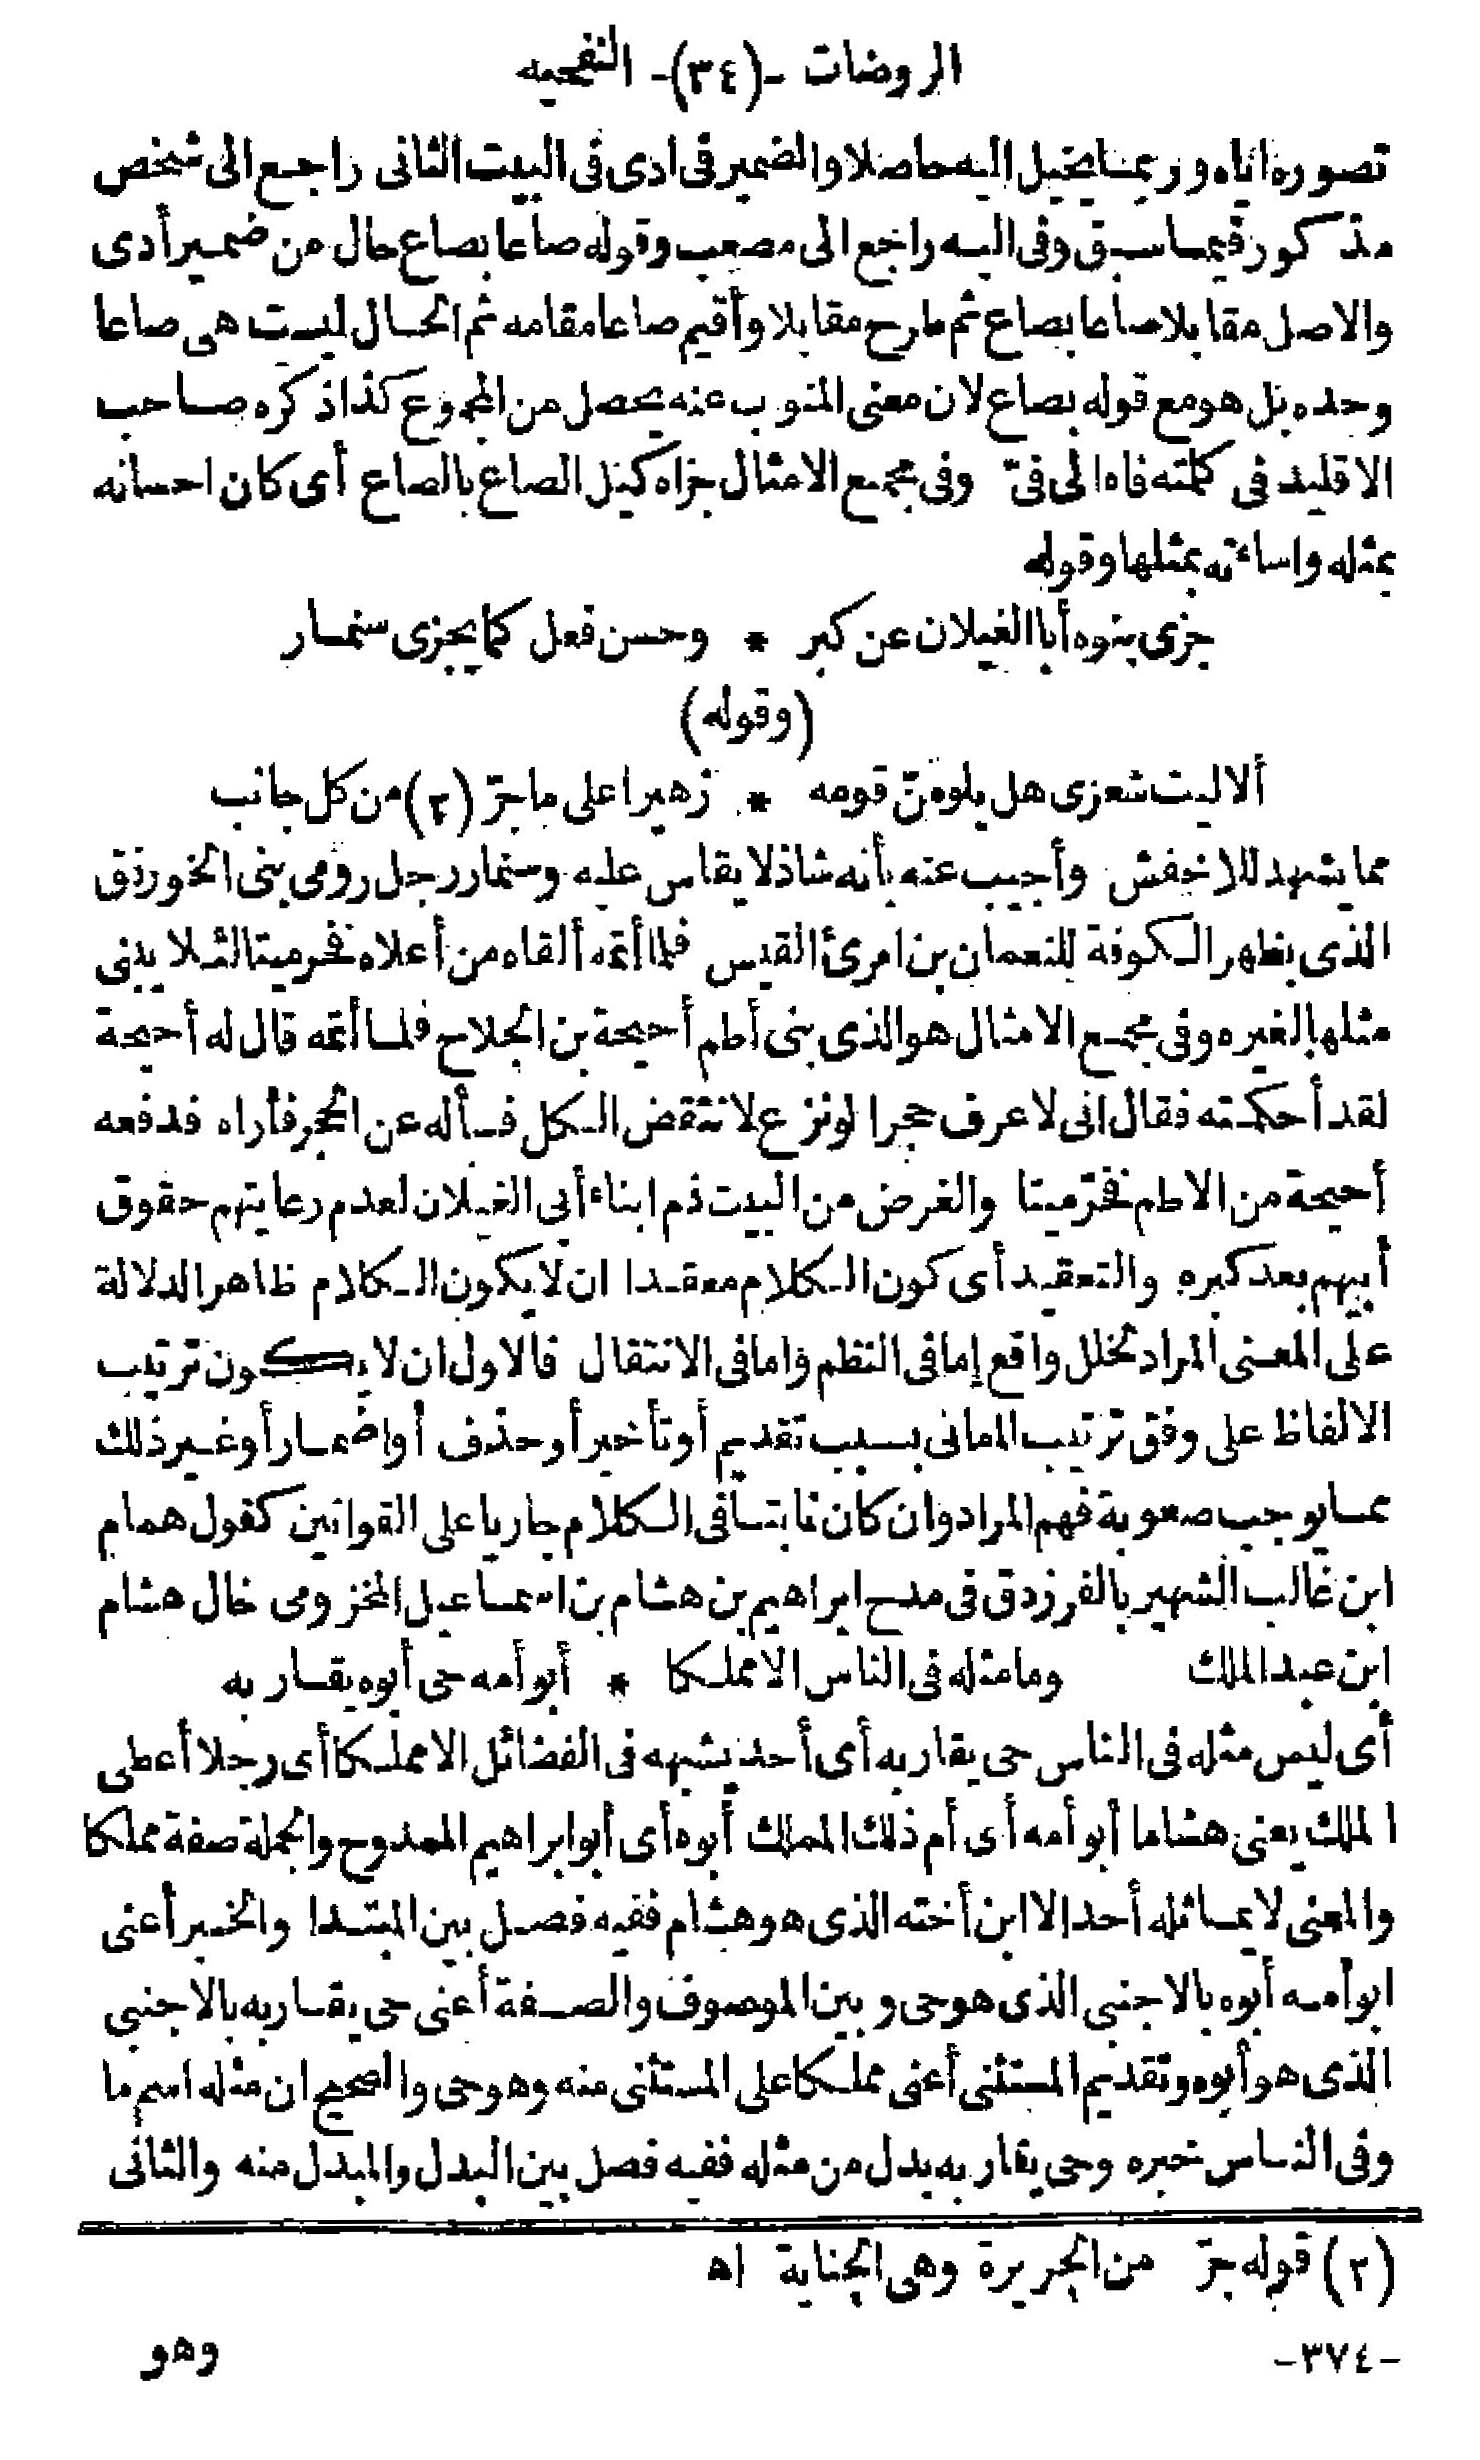 الروضات -(٣٤)- النفحيه
تصوره اياه وربما يخيل اليه حاصلا والضمير فى ادى فى البيت الثانى راجع الى شخص
مذكور فيما سبق وفى اليه راجع الى مصعب وقوله صاعا بصاع حال من ضمير أدى
والاصل مقابلا صاعا بصاع ثم طرح مقابلا وأقيم صاعا مقامه ثم الحال ليست هى صاعا
وحده بل هو مع قوله بصاع لان معنى المنوب عنه يحصل من المجموع كذا ذكره صاحب
الاقليد فى كلمته فاه الى فىّ وفى مجمع الامثال جزاه كيل الصاع بالصاع أى كان احسانه
بمثله واساءته بمثلها وقوله
جزى بنوه أبا الغيلان عن كبر * وحسن فعل كما يجزى سنمار
(وقوله)
ألا ليت شعرى هل يلومنّ قومه * زهيرا على ماجرّ (٢) من كل جانب
مما يشهد للاخفش وأجيب عنه بأنه شاذ لا يقاس عليه وسنمار رجل رومى بنى الخورنق
الذى بظهر الكوفة للنعمان بن امرئ القيس فلما أتمه ألقاه من أعلاه فخر ميتا لئلا يبنى
مثلها لغيره وفى مجمع الامثال هو الذى بنى أطم أحيحة بن الجلاح فلما أتمه قال له أحيحة
لقد أحكمته فقال انى لاعرف حجرا لو نزع لانتقض الكل فسأله عن الحجر فأراه فدفعه
أحيحة من الاطم فخرّ ميتا والغرض من البيت ذم ابناء أبى الغيلان لعدم رعايتهم حقوق
أبيهم بعد كبره والتعقيد أى كون الكلام معقدا ان لا يكون الكلام ظاهر الدلالة
على المعنى المراد لخلل واقع إما فى النظم واما فى الانتقال فالاول ان لا يكون ترتيب
الالفاظ على وفق ترتيب المعانى بسبب تقديم أو تأخير أو حذف أو اضمار أو غير ذلك
مما يوجب صعوبة فهم المراد وان كان ثابتا فى الكلام جاريا على القوانين كقول همام
ابن غالب الشهير بالفرزدق فى مدح ابراهيم بن هشام بن اسماعيل المخزومى خال هشام
ابن عبد الملك وما مثله فى الناس الا مملكا * أبو أمه حى أبوه يقاربه
أى ليس مثله فى الناس حى يقاربه أى أحد يشبهه فى الفضائل الا مملكا أى رجلا أعطى
الملك يعنى هشاما أبو أمه أى أم ذلك المملك أبوه أى أبو ابراهيم الممدوح والجملة صفة مملكا
والمعنى لا يماثله أحد الا ابن أخته الذى هو هشام ففيه فصل بين المبتدا والخبر أعنى
ابو أمه أبوه بالاجنبى الذى هو حى وبين الموصوف والصفة أعنى حى يقاربه بالاجنبى
الذى هو أبوه وتقديم المستثنى أعنى مملكا على المستثنى منه وهو حى والصحيح ان مثله اسم ما
وفى الناس خبره وحى يقاربه بدل من مثله ففيه فصل بين البدل والمبدل منه والثانى
(٢) قوله جرّ من الجريرة وهى الجناية اه
وهو
-٣٧٤-